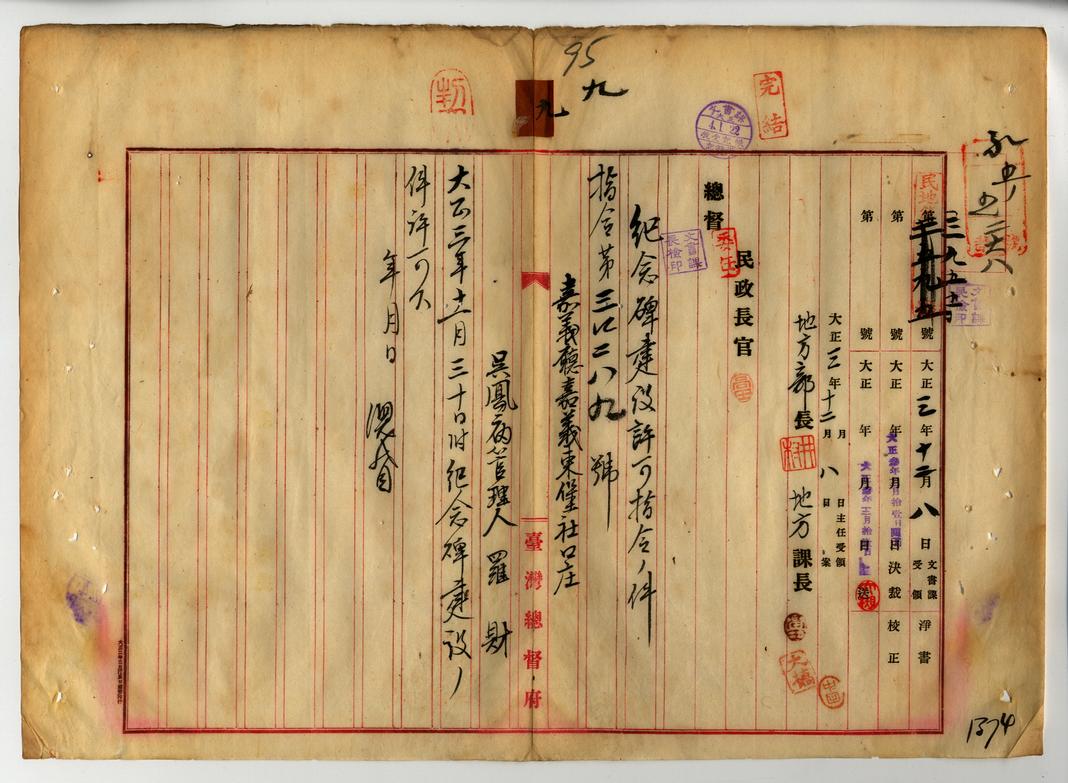 95
九
九
完結
4.1.22
永五ノ五三六八
民地第三九五五號 大正三年十二月八日 文書課受領 淨書
第 號 大正 年 月 日決裁 校正
第 號 大正 年 月 日 發送
大正三年十二月 月 日主任受領
八日 案
地方部長 地方課長
民政長官
總督
委任
文書課長檢印
文書課長檢印
紀念碑建設許可指令ノ件
指令第三〇二八九號
嘉義廳嘉義東堡社口庄
吳鳳廟管理人 羅 財
大正三年十一月三十日附紀念碑建設ノ
件許可ス
年 月 日 總督
臺灣總督府
1374